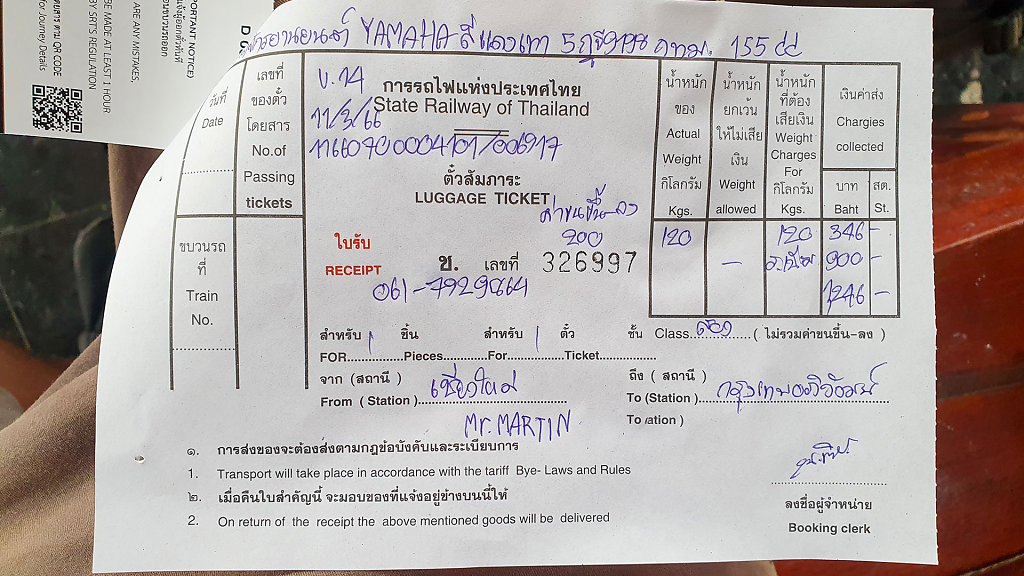 PORTANT NOTICE)
ARE ANY MISTAKES,
BE MADE AT LEAST 1 HOUR
BY SRT'S REGULATION
QR CODE
for Journey Details
YAMAHA สีแดงเทา 5 กฐ 9198 กทม. 155 cc
วันที่
Date
เลขที่
ของตั๋ว
โดยสาร
No.of
Passing
tickets
ข.14
11/3/66
การรถไฟแห่งประเทศไทย
State Railway of Thailand
ตั๋วสัมภาระ
LUGGAGE TICKET
ค่าขนขึ้น-ลง
200
ใบรับ
RECEIPT
ช. เลขที่ 326997
น้ำหนัก
ของ
Actual
Weight
กิโลกรัม
Kgs.
น้ำหนัก
ยกเว้น
ให้ไม่เสีย
เงิน
Weight
allowed
น้ำหนัก
ที่ต้อง
เสียเงิน
Weight
Charges
For
กิโลกรัม
Kgs.
เงินค่าส่ง
Chargies
collected
บาท
Baht
สต.
St.
120 - 120 346 -
900 -
1246 -
ขบวนรถ
ที่
Train
No.
สำหรับ 1 ชิ้น สำหรับ 1 ตั๋ว ชั้น Class ( ไม่รวมค่าขนขึ้น-ลง )
FOR Pieces For Ticket
จาก (สถานี ) เชียงใหม่ ถึง ( สถานี )
From ( Station ) To (Station ) กรุงเทพอภิวัฒน์
Mr. MARTIN
๑. การส่งของจะต้องส่งตามกฎข้อบังคับและระเบียบการ
1. Transport will take place in accordance with the tariff Bye- Laws and Rules
๒. เมื่อคืนใบสำคัญนี้ จะมอบของที่แจ้งอยู่ข้างบนนี้ให้
2. On return of the receipt the above mentioned goods will be delivered
ลงชื่อผู้จำหน่าย
Booking clerk